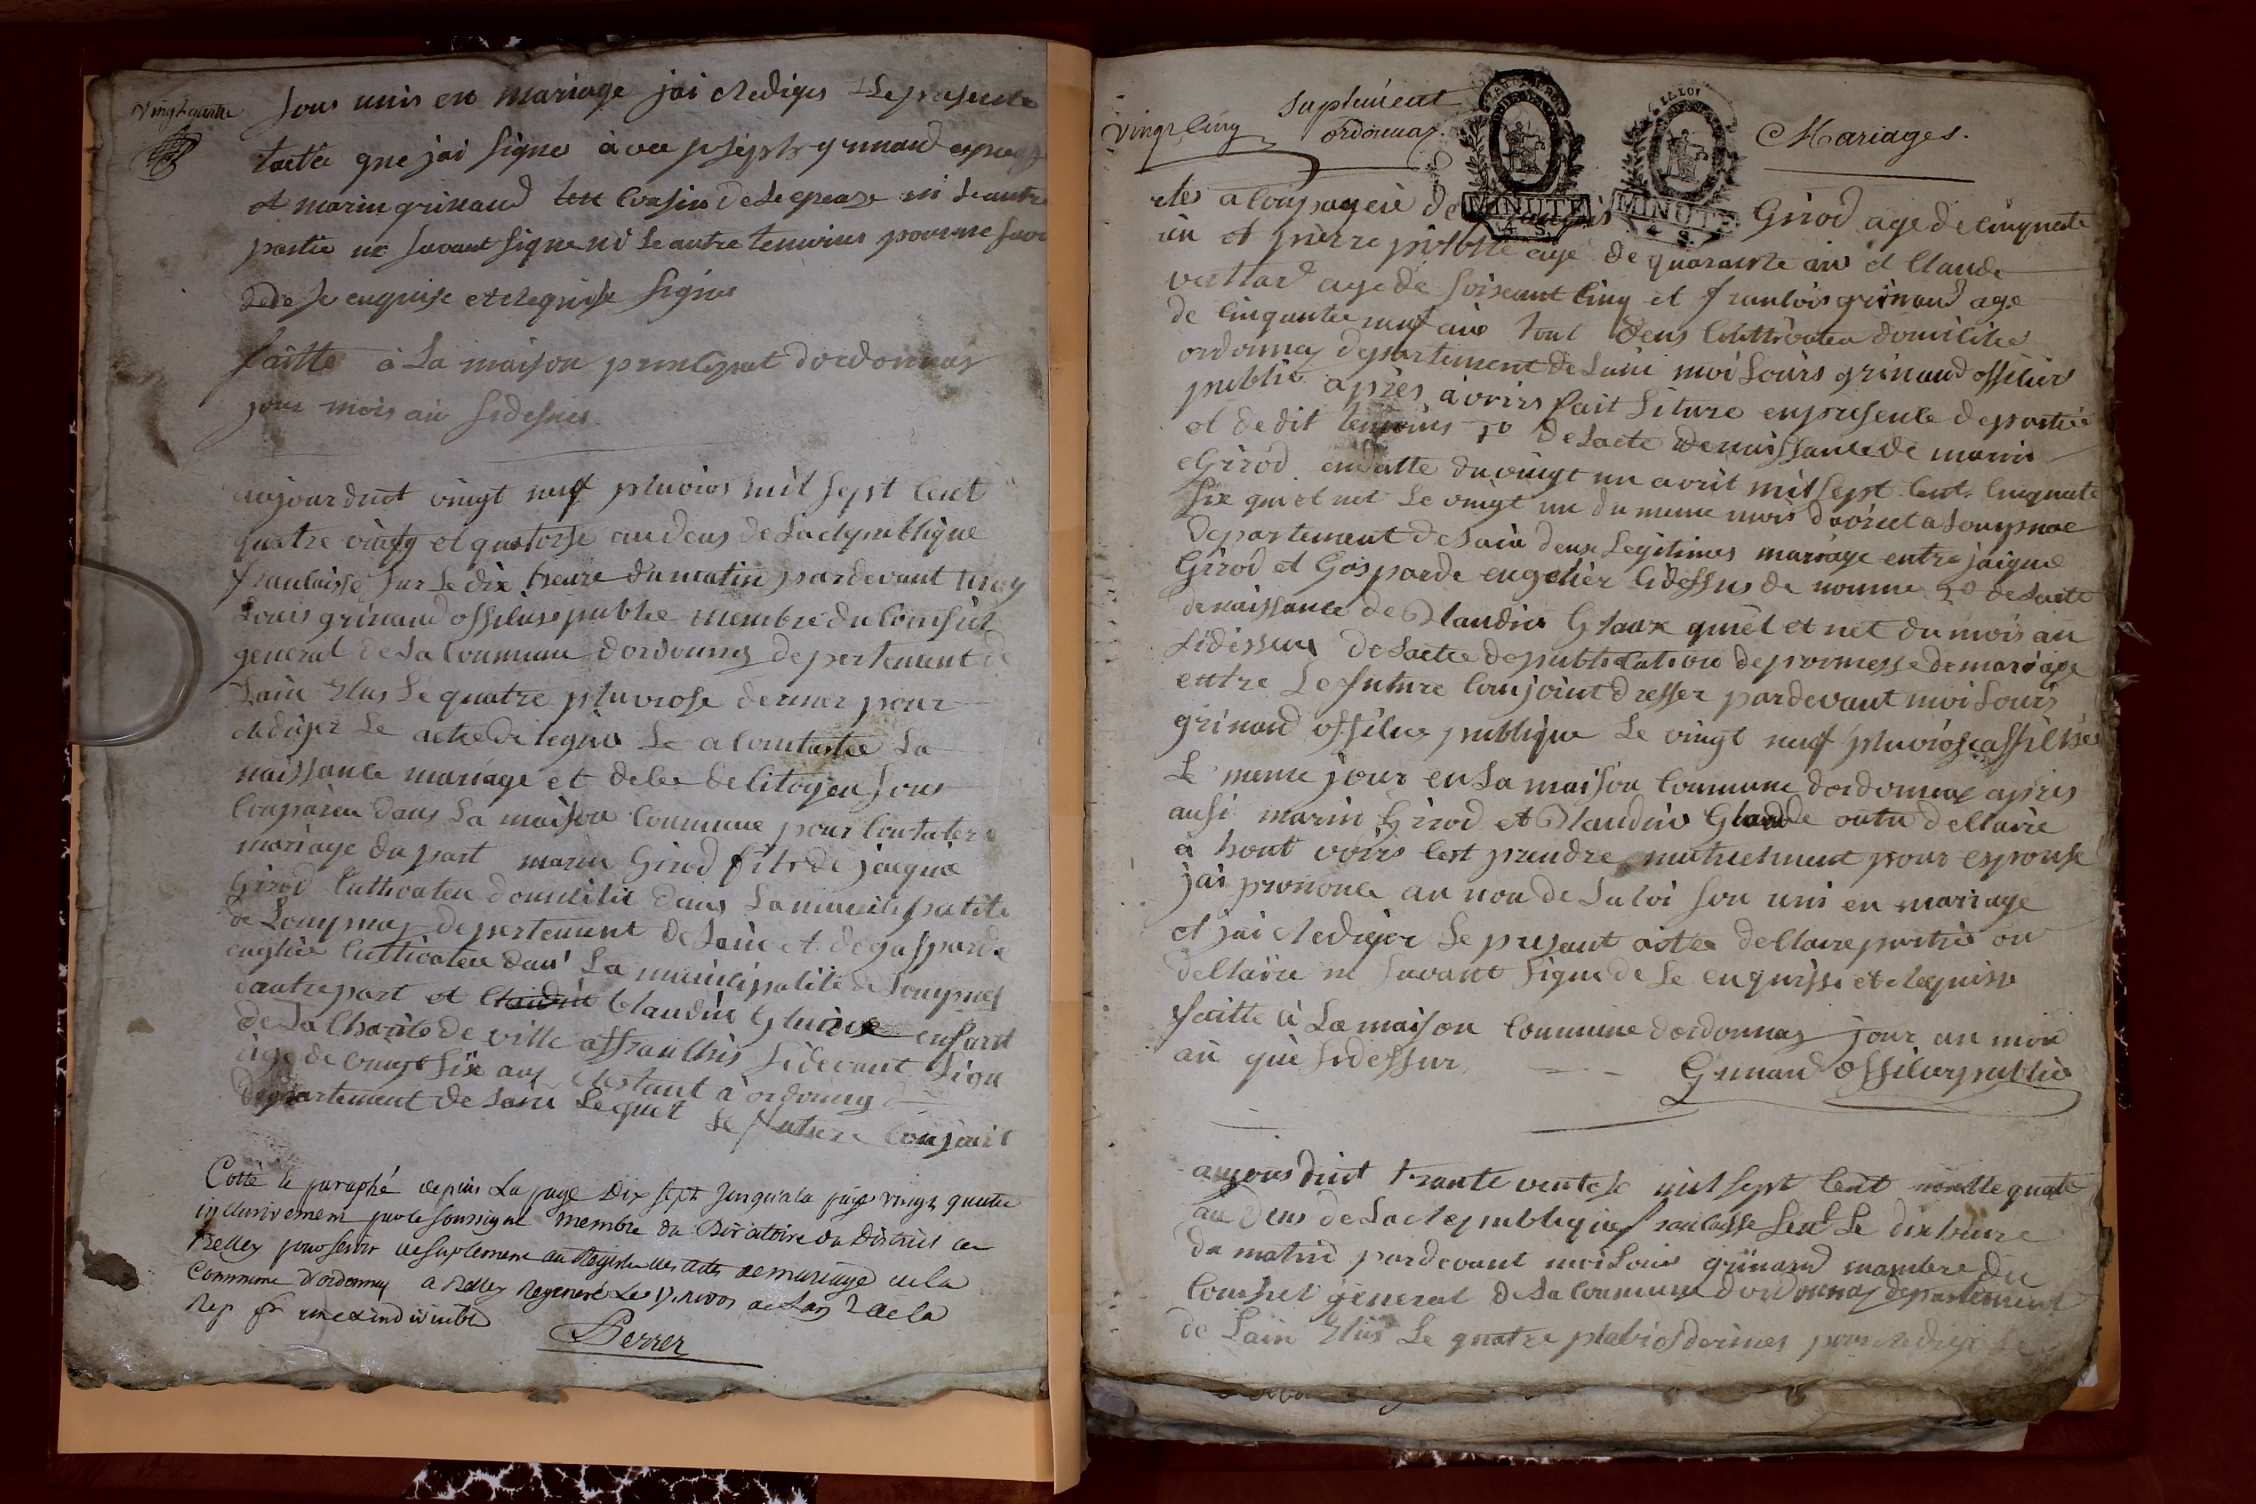 vingt quatre
sous unis en mariage jai Rediges Le presente
tacte que jai signer avec joseph grinand
et marin grinand cousin de Le epouse ni Le autre
partie ne savant signe ni Le autre temoins pour ne
de se enquise et Requise signer
faitte à La maison principal dordonnas
jour mois an sidesus
aujourduit vingt neuf pluvios mil sept cent
quatre vingt et quatorse an deus de La Republique
francaisse sur Le dix heure du matin pardevant moy
Louis grinand officiers publie membre du Conseil
general de La Commune dordonnas departement de
Lain Elus Le quatre pluviose dernier pour
Rediger Le acte de Le a Constater La
naissance mariage et de citoyen sont
Comparu dans La maison Commune pour Contater
mariage du part marin Girod fils de jacque
Girod Cultivateu domicilie dans La municipalité
de Lompnas departement de Lain et de gasparde
Cultivateu dans La municipalité de Lompnas
dautre part et Claudin enfant
de La Charité de ville affranchis sidevant
age de vingt six ans Restant à ordonnas
departement de Lain Lequel Le future Conjoint
Cotté & paraphé depuis La page Dix sept Jusqu'a la page vingt quatre
inclusivement par le soussigné membre du Directoire du District de
Belley pour servir de suplement au Registre des actes de mariage de la
Commune D'ordonnas a Belley Regeneré Le nivos de L'an 2 de la
Rep fr une & indivisible
Ferrer
vingt cinq
Suplement
ordonnaz
LA LOI
MINUTE
4 S.
LA LOI
MINUTE
4 S.
Mariages.
Girod age de cinquante
un et pierre age de quarante ans et Claude
age de soixant cinq et francois grinand age
de cinquante neuf ans tout deus Cultivateu domicilie
ordonnas departement de Lain moi Louis grinand officier
publie apres avoirs fait Liture en presence de partie
et de dit temoins 1o de Lacte de naissance de marin
Girod en datte du vingt un avril mil sept cent cinquante
six qui et net Le vingt un du meme mois davril a Lompnas
departement de Lain deux Legitimes mariage entre jaique
Girod et Gasparde sidessus de nomme 2o de Lacte
de naissance de Claudin qui et net du mois an
sidessus de Lacte de publication de promesse de mariage
entre Le future Conjoint dresser pardevant moi Louis
grinand officier publique Le vingt neuf pluviose affiches
Le meme jour en La maison Commune dordonnas apres
ausi marin Girod et Claudin outre dellaire
a hout voirs cest prendre mutuelment pour epouse
jai prononce au non de La loi son uni en mariage
et jai Rediger Le presant acte dellaire partie on
dellaire ne savant signe de Le enquisse et Requisse
faitte à La maison Commune dordonnas jour an mois
an que sidessur
Grinand officier publie
aujourduit trante ventose mil sept cent nonatte quatre
an deus de La Republique francaisse sur Le dix heure
du matin pardevant moi Louis grinand membre du
Conseil general de La Commune dordonnas departement
de Lain Elus Le quatre pluvios dernier pour Rediger Le